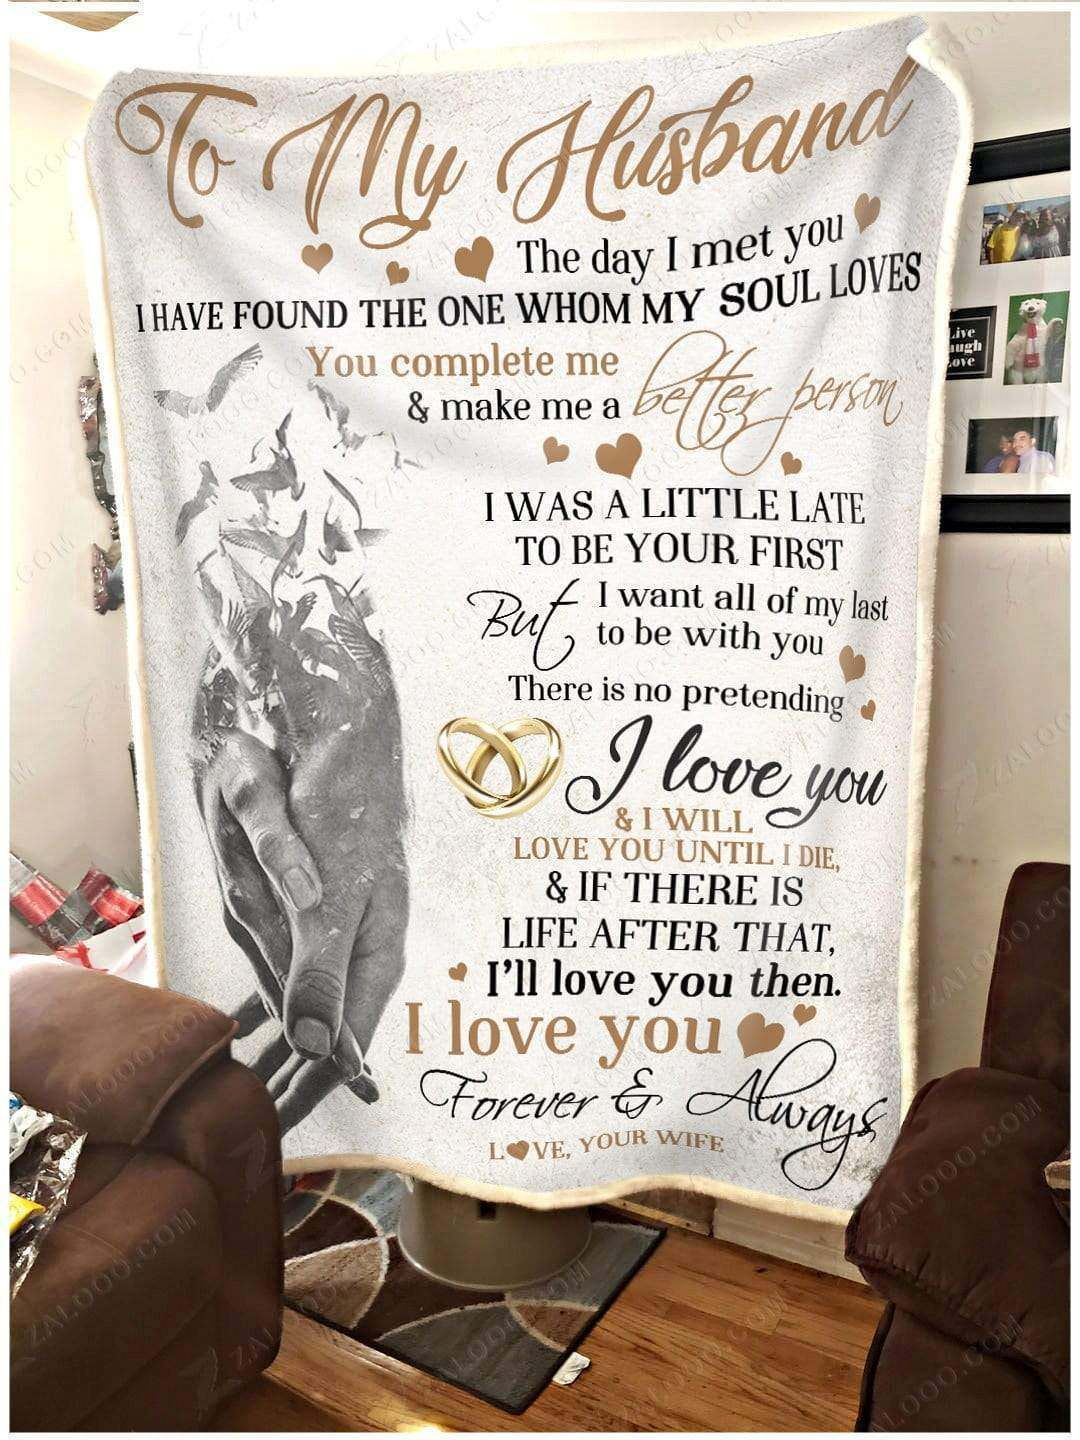 To My Husband
The day I met you
I HAVE FOUND THE ONE WHOM MY SOUL LOVES
You complete me
& make me a better person
I WAS A LITTLE LATE
TO BE YOUR FIRST
But I want all of my last
to be with you
There is no pretending
I love you
& I WILL
LOVE YOU UNTIL I DIE,
& IF THERE IS
LIFE AFTER THAT,
I'll love you then.
I love you
Forever & Always
LOVE, YOUR WIFE
Live
augh
Love
ZALOOO.COM